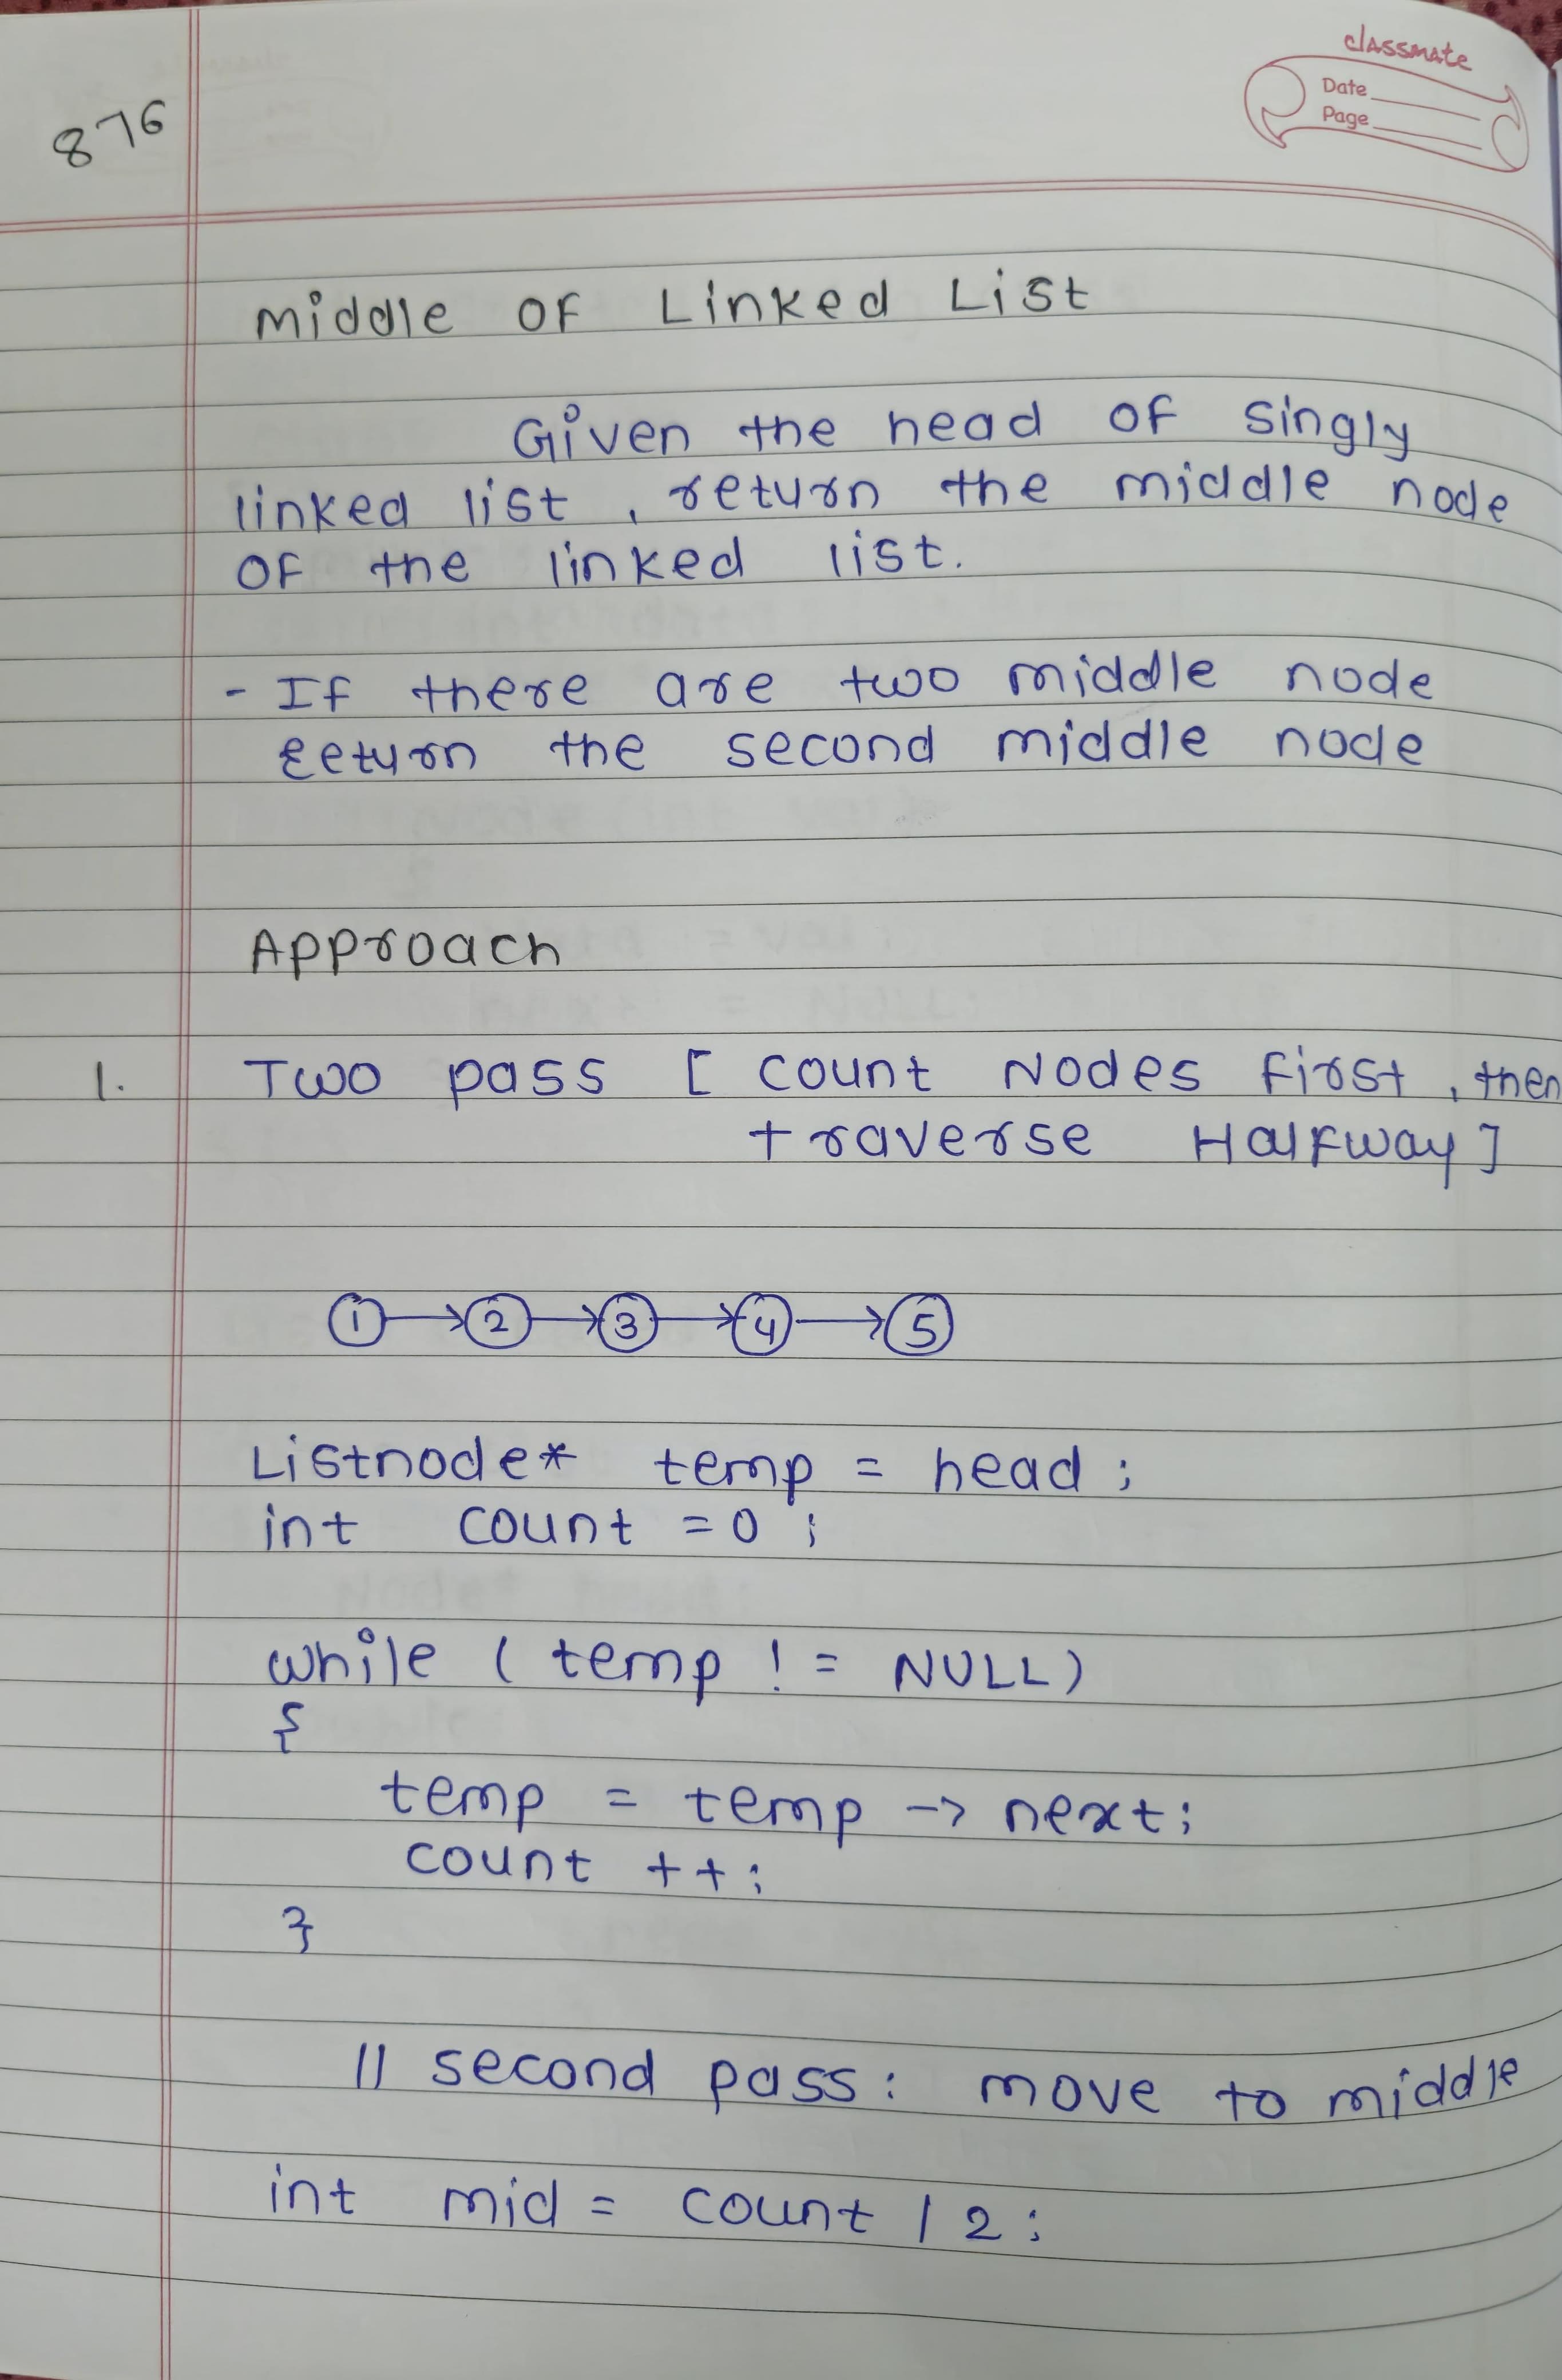 classmate
Date
Page
876
Middle OF Linked List
Given the head OF singly
linked list , return the middle node
OF the linked list.
- If there are two middle node
return the second middle node
Approach
1. Two pass [ count Nodes first , then
traverse Halfway ]
1 → 2 → 3 → 4 → 5
Listnode* temp = head ;
int count = 0 ;
while ( temp != NULL )
{
temp = temp -> next ;
count ++ ;
}
// second pass : move to middle
int mid = count / 2 ;